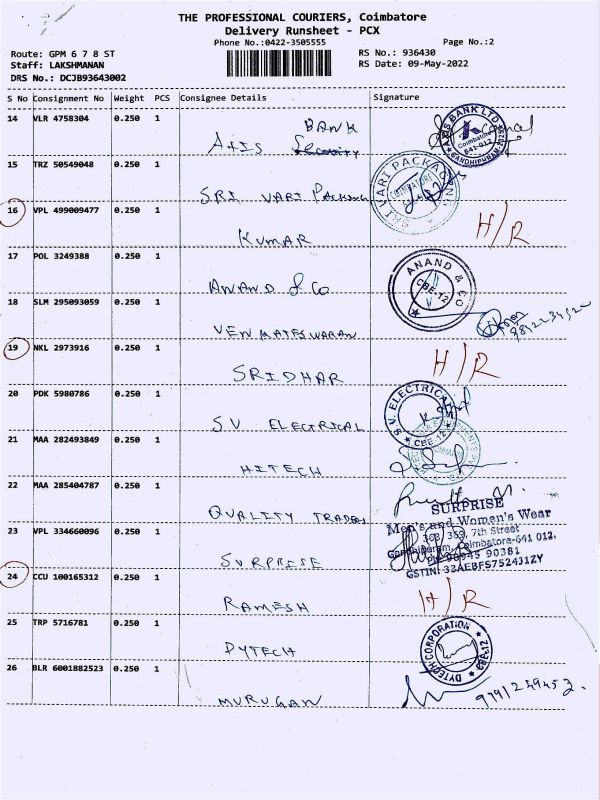 THE PROFESSIONAL COURIERS, Coimbatore
Delivery Runsheet - PCX
Phone No.:0422-3505555
Page No.:2
Route: GPM 6 7 8 ST
RS No.: 936430
Staff: LAKSHMANAN
RS Date: 09-May-2022
DRS No.: DCJB93643002
S No Consignment No Weight PCS Consignee Details Signature
14 VLR 4758304 0.250 1
AXIS BANK
AXIS BANK LTD Coimbatore 641-012 GANDHIPURAM
15 TRZ 50549048 0.250 1
SRI VARI Packaging
SRI VARI PACKAGING
16 VPL 499009477 0.250 1
KUMAR H/R
17 POL 3249388 0.250 1
ANAND & Co
ANAND & CO CBE-12
18 SLM 295093059 0.250 1
VENKATESWARAN
19 NKL 2973916 0.250 1
SRIDHAR H/R
20 PDK 5980786 0.250 1
S.V ELECTRICAL
S.V. ELECTRICAL CBE 12
21 MAA 282493849 0.250 1
HITECH
22 MAA 285404787 0.250 1
QUALITY TRADERS
23 VPL 334660096 0.250 1
SURPRISE
SURPRISE
Men's and Women's Wear
7th Street
Gandhipuram, Coimbatore-641 012.
90381
24 CCU 100165312 0.250 1
RAMESH H/R
25 TRP 5716781 0.250 1
DYTECH
DYTECH CORPORATION CBE-12
26 BLR 6001882523 0.250 1
MURUGAN